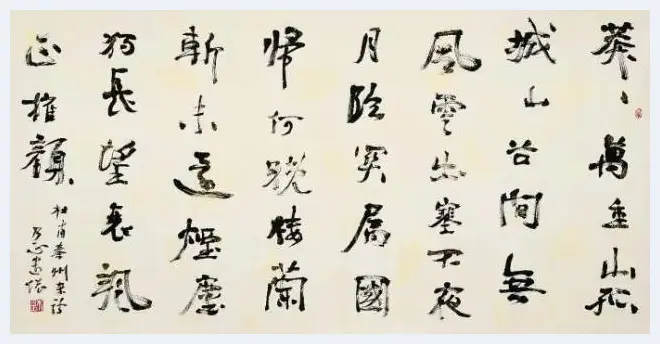 莽〻萬重山孤
城山谷間無
風雲出塞不夜
月臨関属國
歸何晚楼蘭
斬未還煙塵
独長望衰颯
正摧顏
杜甫秦州杂诗